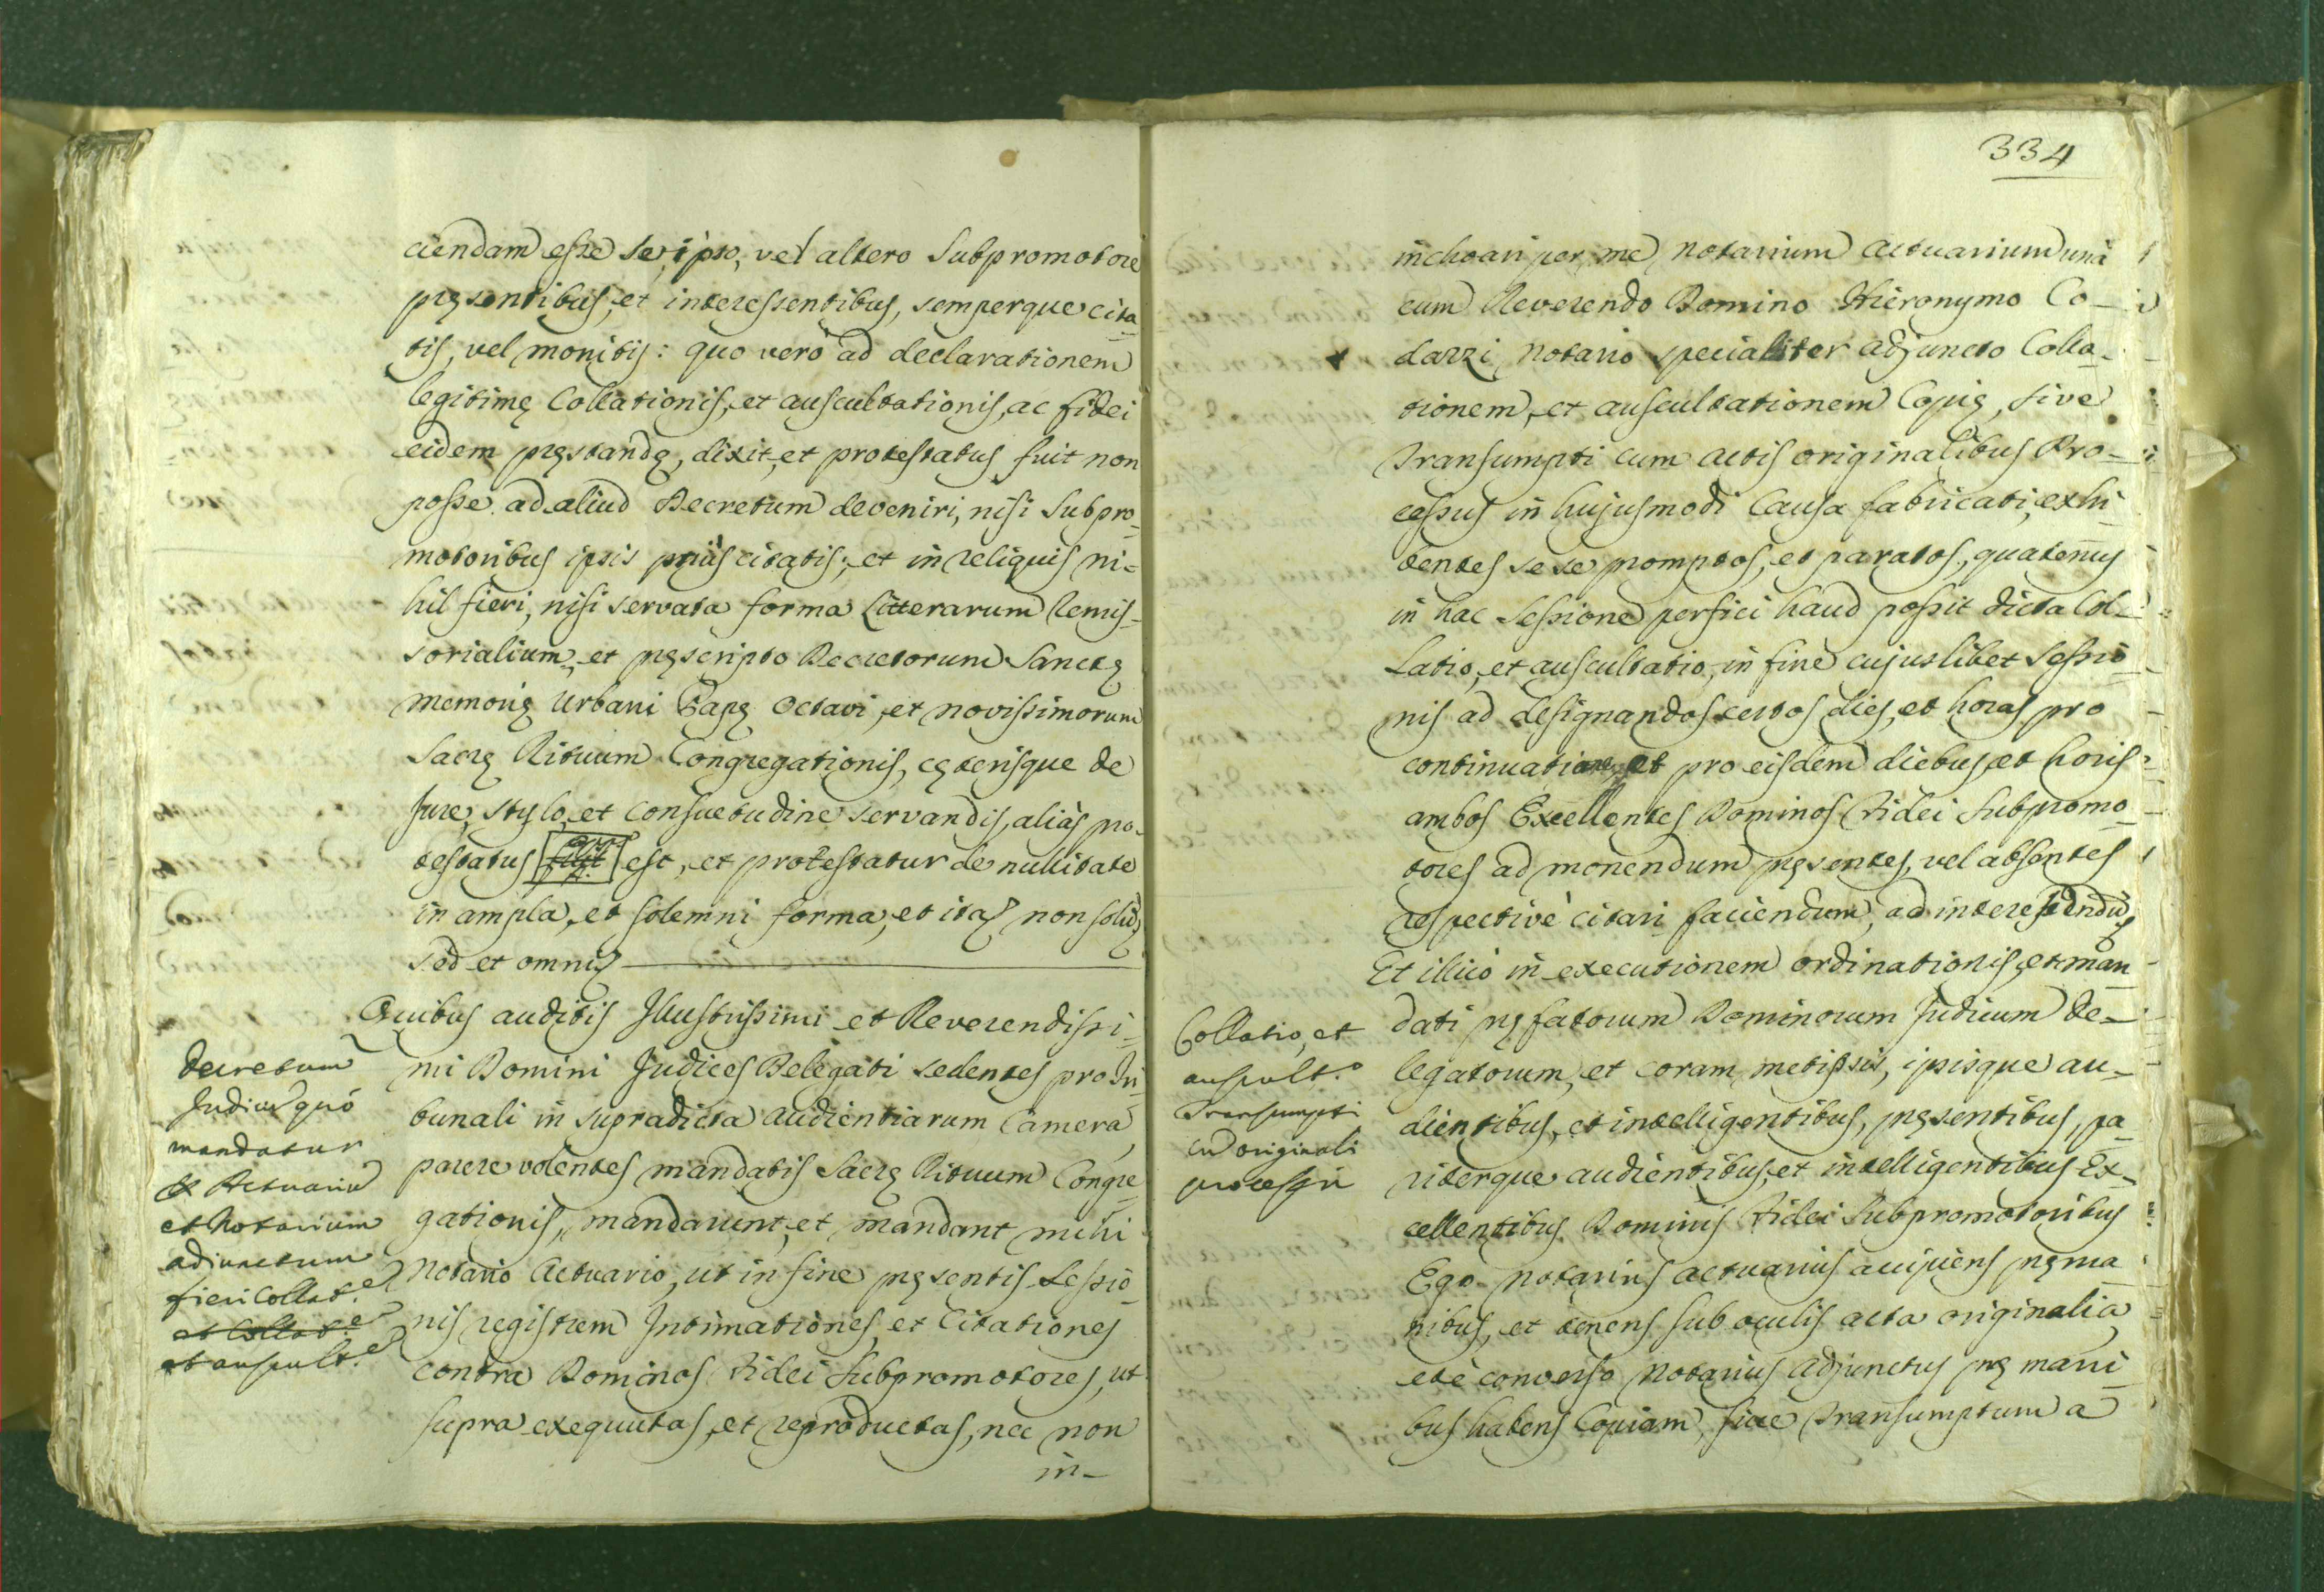 ciendam esse se ipso, vel altero Subpromotore
pręsentibus, et interessentibus, semperque cita-
tis, vel monitis: quo verò ad declarationem
legitimę Collationis, et auscultationis, ac fidei
eidem pręstandę, dixit, et protestatus fuit non
posse ad aliud Decretum deveniri, nisi Subpro-
motoribus ipsis priùs citatis; et in reliquis ni-
hil fieri, nisi servata forma Litterarum Remis-
sorialium, et pręscripto Decretorum Sanctę
memorię Urbani Papę Octavi, et novissimorum
Sacrę Rituum Congregationis, cęterisque de
Jure, stylo, et consuetudine servandis, aliàs pro-
testatus est, et protestatur de nullitate
in ampla, et solemni forma, et ita non solũ
sed et omni
Quibus auditis Illustrissimi et Reverendissi-
mi Domini Judices Delegati sedentes pro Tri-
bunali in supradicta Audientiarum Camera,
parere volentes mandatis Sacrę Rituum Congre-
gationis, mandarunt, et mandant mihi
Notario Actuario, ut in fine pręsentis Sessio-
nis registrem Intimationes, et Citationes
contra Dominos Fidei Subpromotores, ut
supra exequutas, et reproductas, nec non
in-
Decretum
Judicũ quó
mandatur
Actuariũ
et Notarium
adiunctum
fieri Collat.e
et Collat.e
et auscult.e
334
inchoari per me Notarium Actuarium unà
cum Reverendo Domino Hieronymo Co-
dazzi Notario specialiter adjuncto Colla-
tionem, et auscultationem Copię, sive
Transumpti cum Actis originalibus Pro-
cessus in hujusmodi Causa fabricati, exhi-
bentes sese promptos, et paratos, quatenus
in hac Sessione perfici haud possit dicta Col-
latio, et auscultatio, in fine cujuslibet Sessio-
nis ad designandos certos dies, et horas pro
continuatione, et pro eisdem diebus, et horis
ambos Excellentes Dominos Fidei Subpromo-
tores ad monendum pręsentes, vel absentes
respectivè citari faciendum, ad interessendũ
Et illicò in executionem ordinationis, et man-
dati pręfatorum Dominorum Judicum De-
legatorum, et coram metipsis, ipsisque au-
dientibus, et intelligentibus, pręsentibus, pa-
riterque audientibus, et intelligentibus Ex-
cellentibus Dominis Fidei Subpromotoribus
Ego Notarius Actuarius accipiens prę ma-
nibus, et tenens sub oculis acta originalia
et è converso Notarius Adjunctus prę mani-
bus habens Copiam, sive Transumptum a
Collatio, et
auscult.o
Transumpti
cũ originali
processu